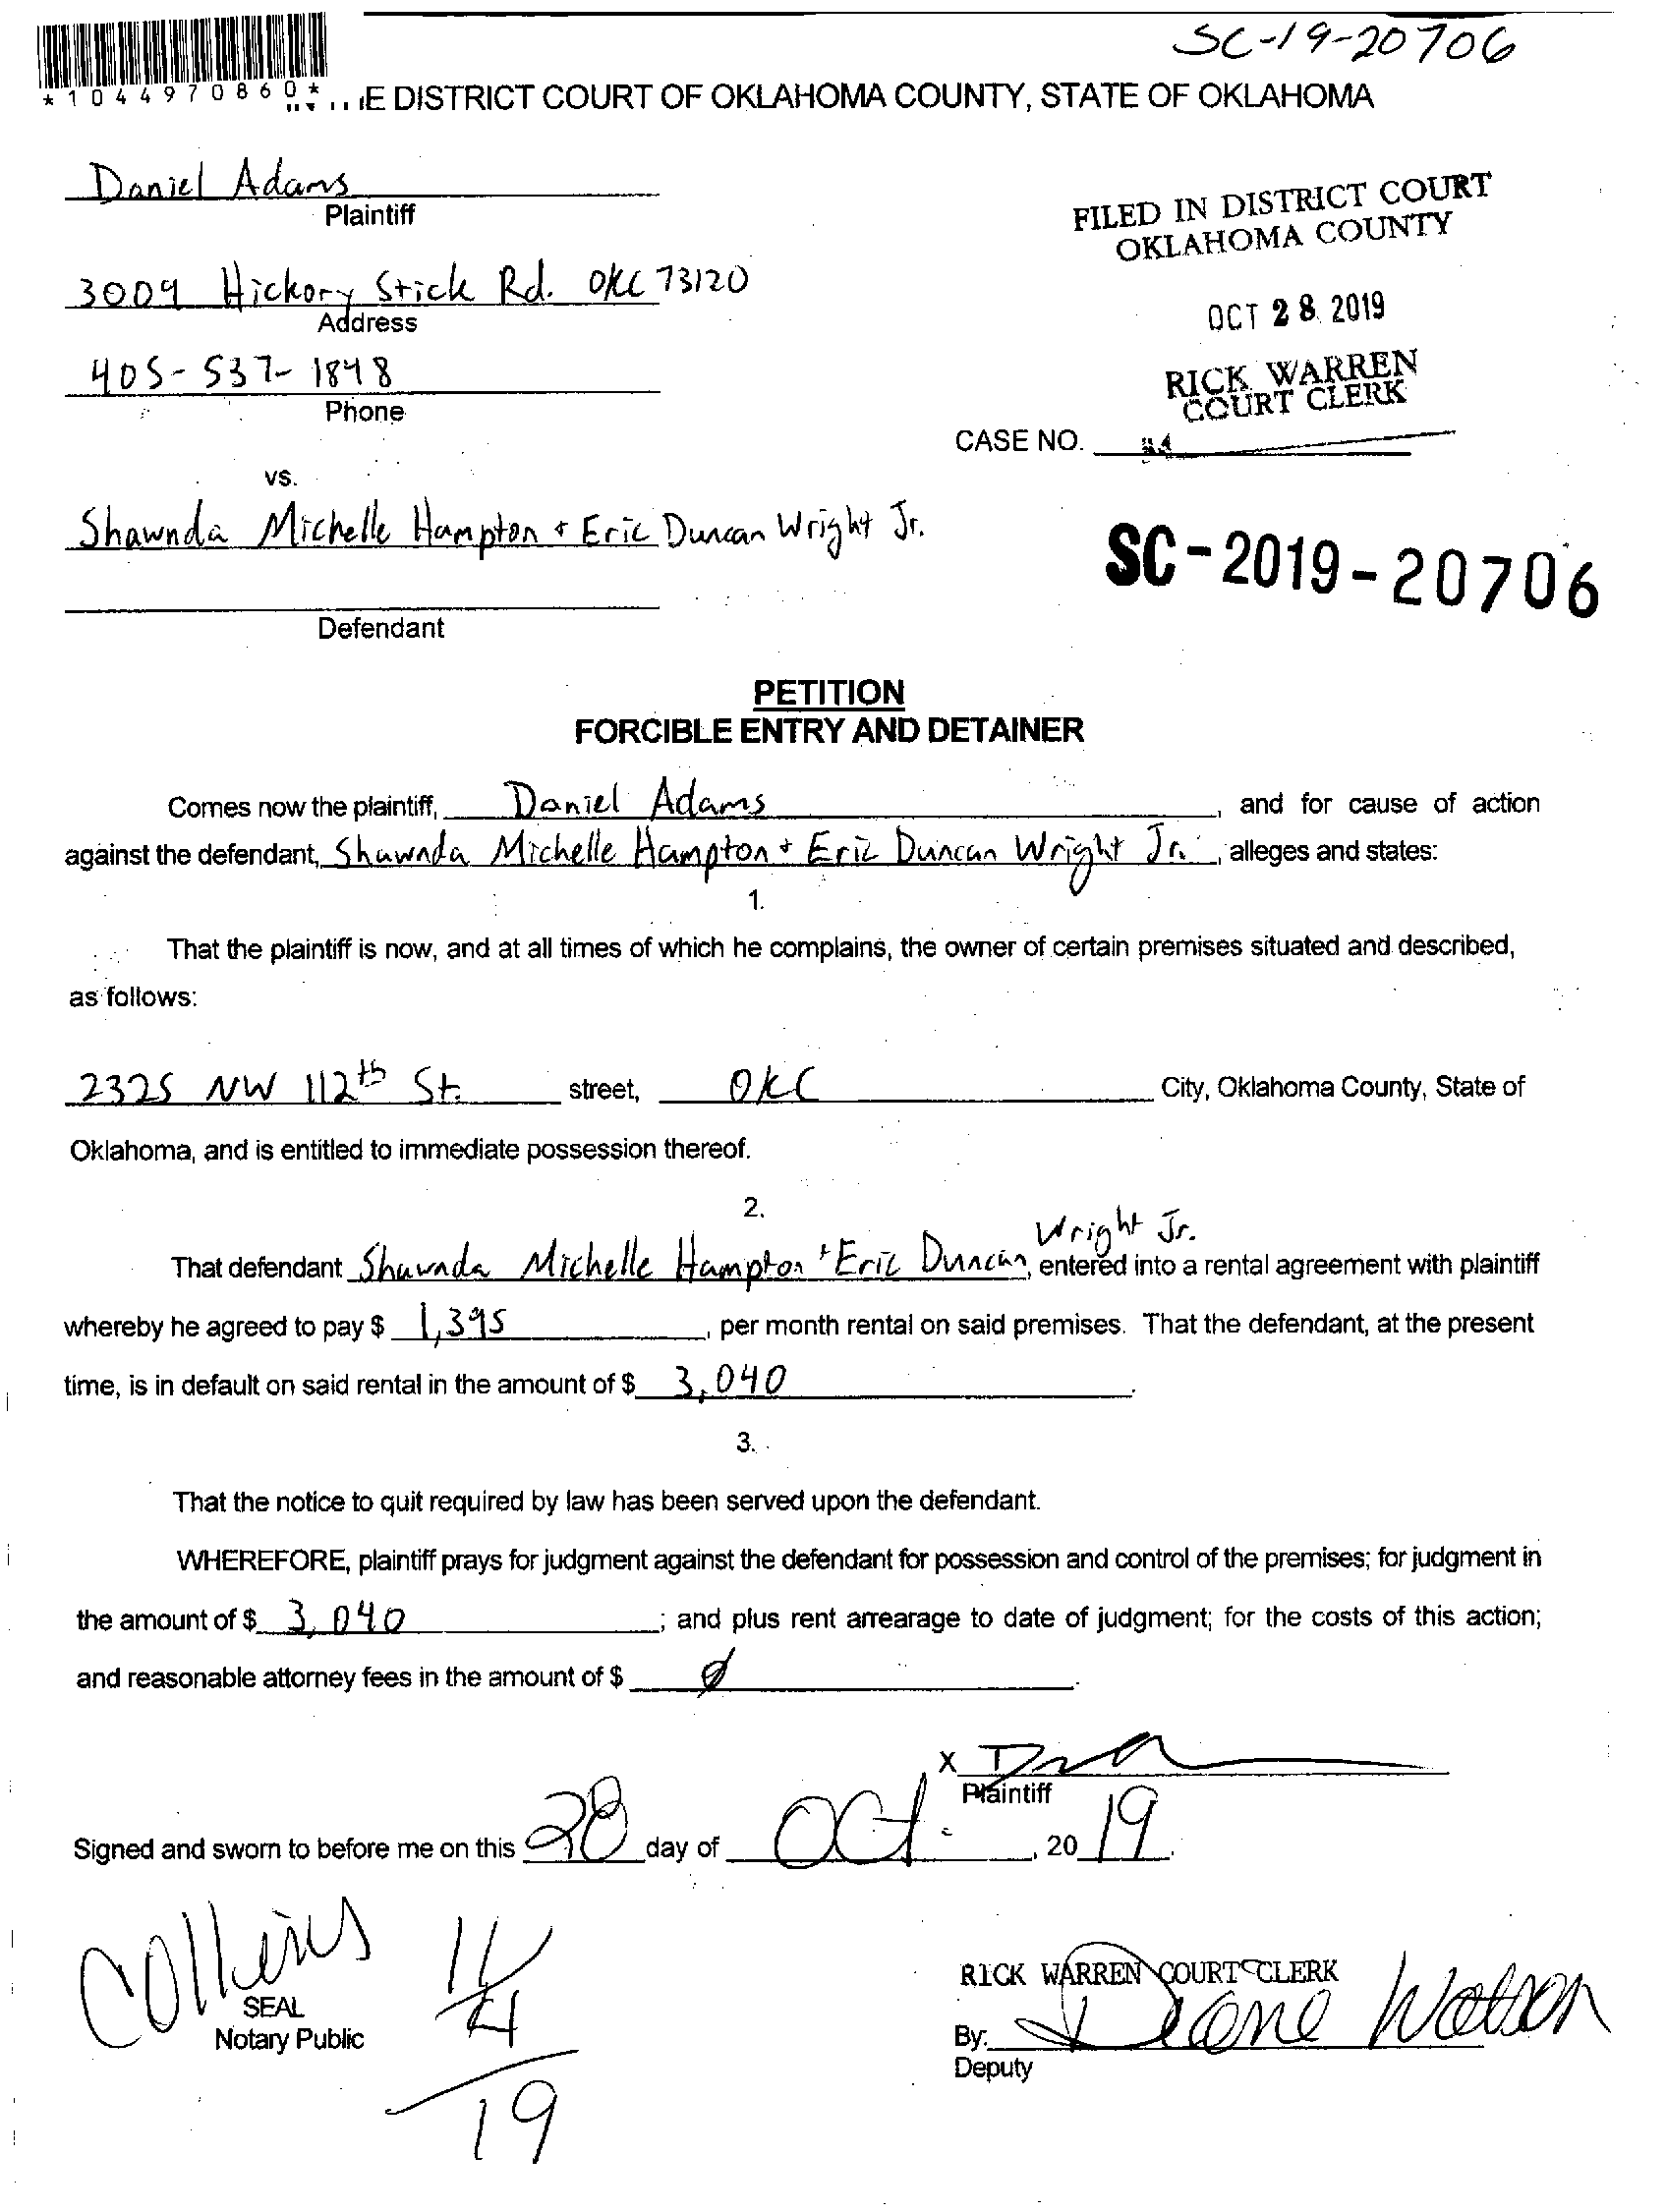 SC-19-20706
*1044970860*
E DISTRICT COURT OF OKLAHOMA COUNTY, STATE OF OKLAHOMA
Daniel Adams
Plaintiff
FILED IN DISTRICT COURT
OKLAHOMA COUNTY
3009 Hickory Stick Rd. OKC 73120
Address
OCT 28 2019
405-537-1848
Phone
RICK WARREN
COURT CLERK
CASE NO.
vs.
Shawnda Michelle Hampton + Eric Duncan Wright Jr.
SC-2019-20706
Defendant
PETITION
FORCIBLE ENTRY AND DETAINER
Comes now the plaintiff, Daniel Adams, and for cause of action
against the defendant, Shawnda Michelle Hampton + Eric Duncan Wright Jr., alleges and states:
1.
That the plaintiff is now, and at all times of which he complains, the owner of certain premises situated and described,
as follows:
2325 NW 112th St. street, OKC City, Oklahoma County, State of
Oklahoma, and is entitled to immediate possession thereof.
2.
Wright Jr.
That defendant Shawnda Michelle Hampton + Eric Duncan, entered into a rental agreement with plaintiff
whereby he agreed to pay $ 1,395, per month rental on said premises. That the defendant, at the present
time, is in default on said rental in the amount of $ 3,040.
3.
That the notice to quit required by law has been served upon the defendant.
WHEREFORE, plaintiff prays for judgment against the defendant for possession and control of the premises; for judgment in
the amount of $ 3,040; and plus rent arrearage to date of judgment; for the costs of this action;
and reasonable attorney fees in the amount of $ Ø.
X
Plaintiff
Signed and sworn to before me on this 28 day of Oct., 2019.
Collins
SEAL
Notary Public
19
RICK WARREN COURT CLERK
By: Diane Watson
Deputy